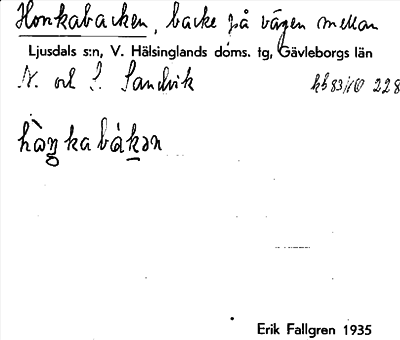 Honkabacken, backe på vägen mellan
Ljusdals s:n, V. Hälsinglands doms. tg, Gävleborgs län
N. och S. Sandvik
hàŋkabákən
Erik Fallgren 1935